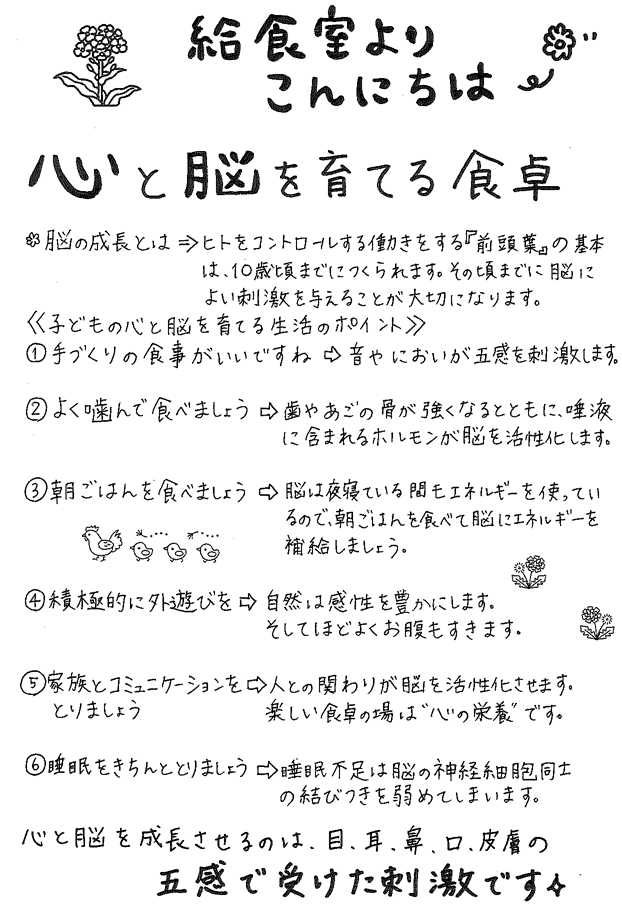 給食室より
こんにちは
心と脳を育てる食卓
脳の成長とは⇒ヒトをコントロールする働きをする『前頭葉』の基本
は、10歳頃までにつくられます。その頃までに脳に
よい刺激を与えることが大切になります。
《子どもの心と脳を育てる生活のポイント》
①手づくりの食事がいいですね⇨音やにおいが五感を刺激します。
②よく噛んで食べましょう⇨歯やあごの骨が強くなるとともに、唾液
に含まれるホルモンが脳を活性化します。
③朝ごはんを食べましょう⇨脳は夜寝ている間もエネルギーを使ってい
るので、朝ごはんを食べて脳にエネルギーを
補給しましょう。
④積極的に外遊びを⇨自然は感性を豊かにします。
そしてほどよくお腹もすきます。
⑤家族とコミュニケーションを⇨人との関わりが脳を活性化させます。
とりましょう 楽しい食卓の場は"心の栄養"です。
⑥睡眠をきちんととりましょう⇨睡眠不足は脳の神経細胞同士
の結びつきを弱めてしまいます。
心と脳を成長させるのは、目、耳、鼻、口、皮膚の
五感で受けた刺激です